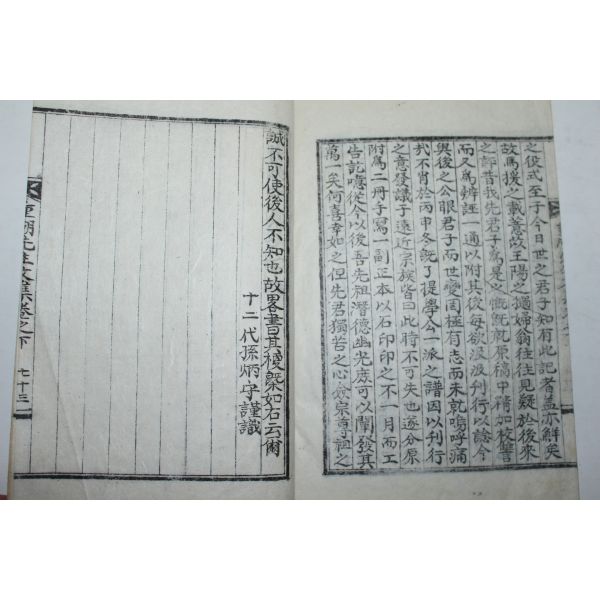 之役式至于今日世之君子知有此記者蓋亦鮮矣
故爲援之載薏故王陽之撾婦翁往往見疑於後來
之評昔我先君子爲是之慨旣就原稿中精加校讐
而又爲辨誣一通以附其後每欲汲汲刊行以諗今
與後之公眼君子而世變罔極有志而未就嗚呼痛
哉不肖於丙申冬旣了提學公一派之譜因以刊行
之意發議于遠近宗族皆曰此時不可失也遂分原
附爲二冊子寫一副正本以石印印之不一月而工
告訖噫從今以後吾先祖潛德幽光庶可以闡發其
萬一矣何喜幸如之但先君獨苦之心僉宗尊祖之
誠不可使後人不知也故畧書其稷槩如右云爾
十二代孫炳守謹識
先生文集卷之下 七十三